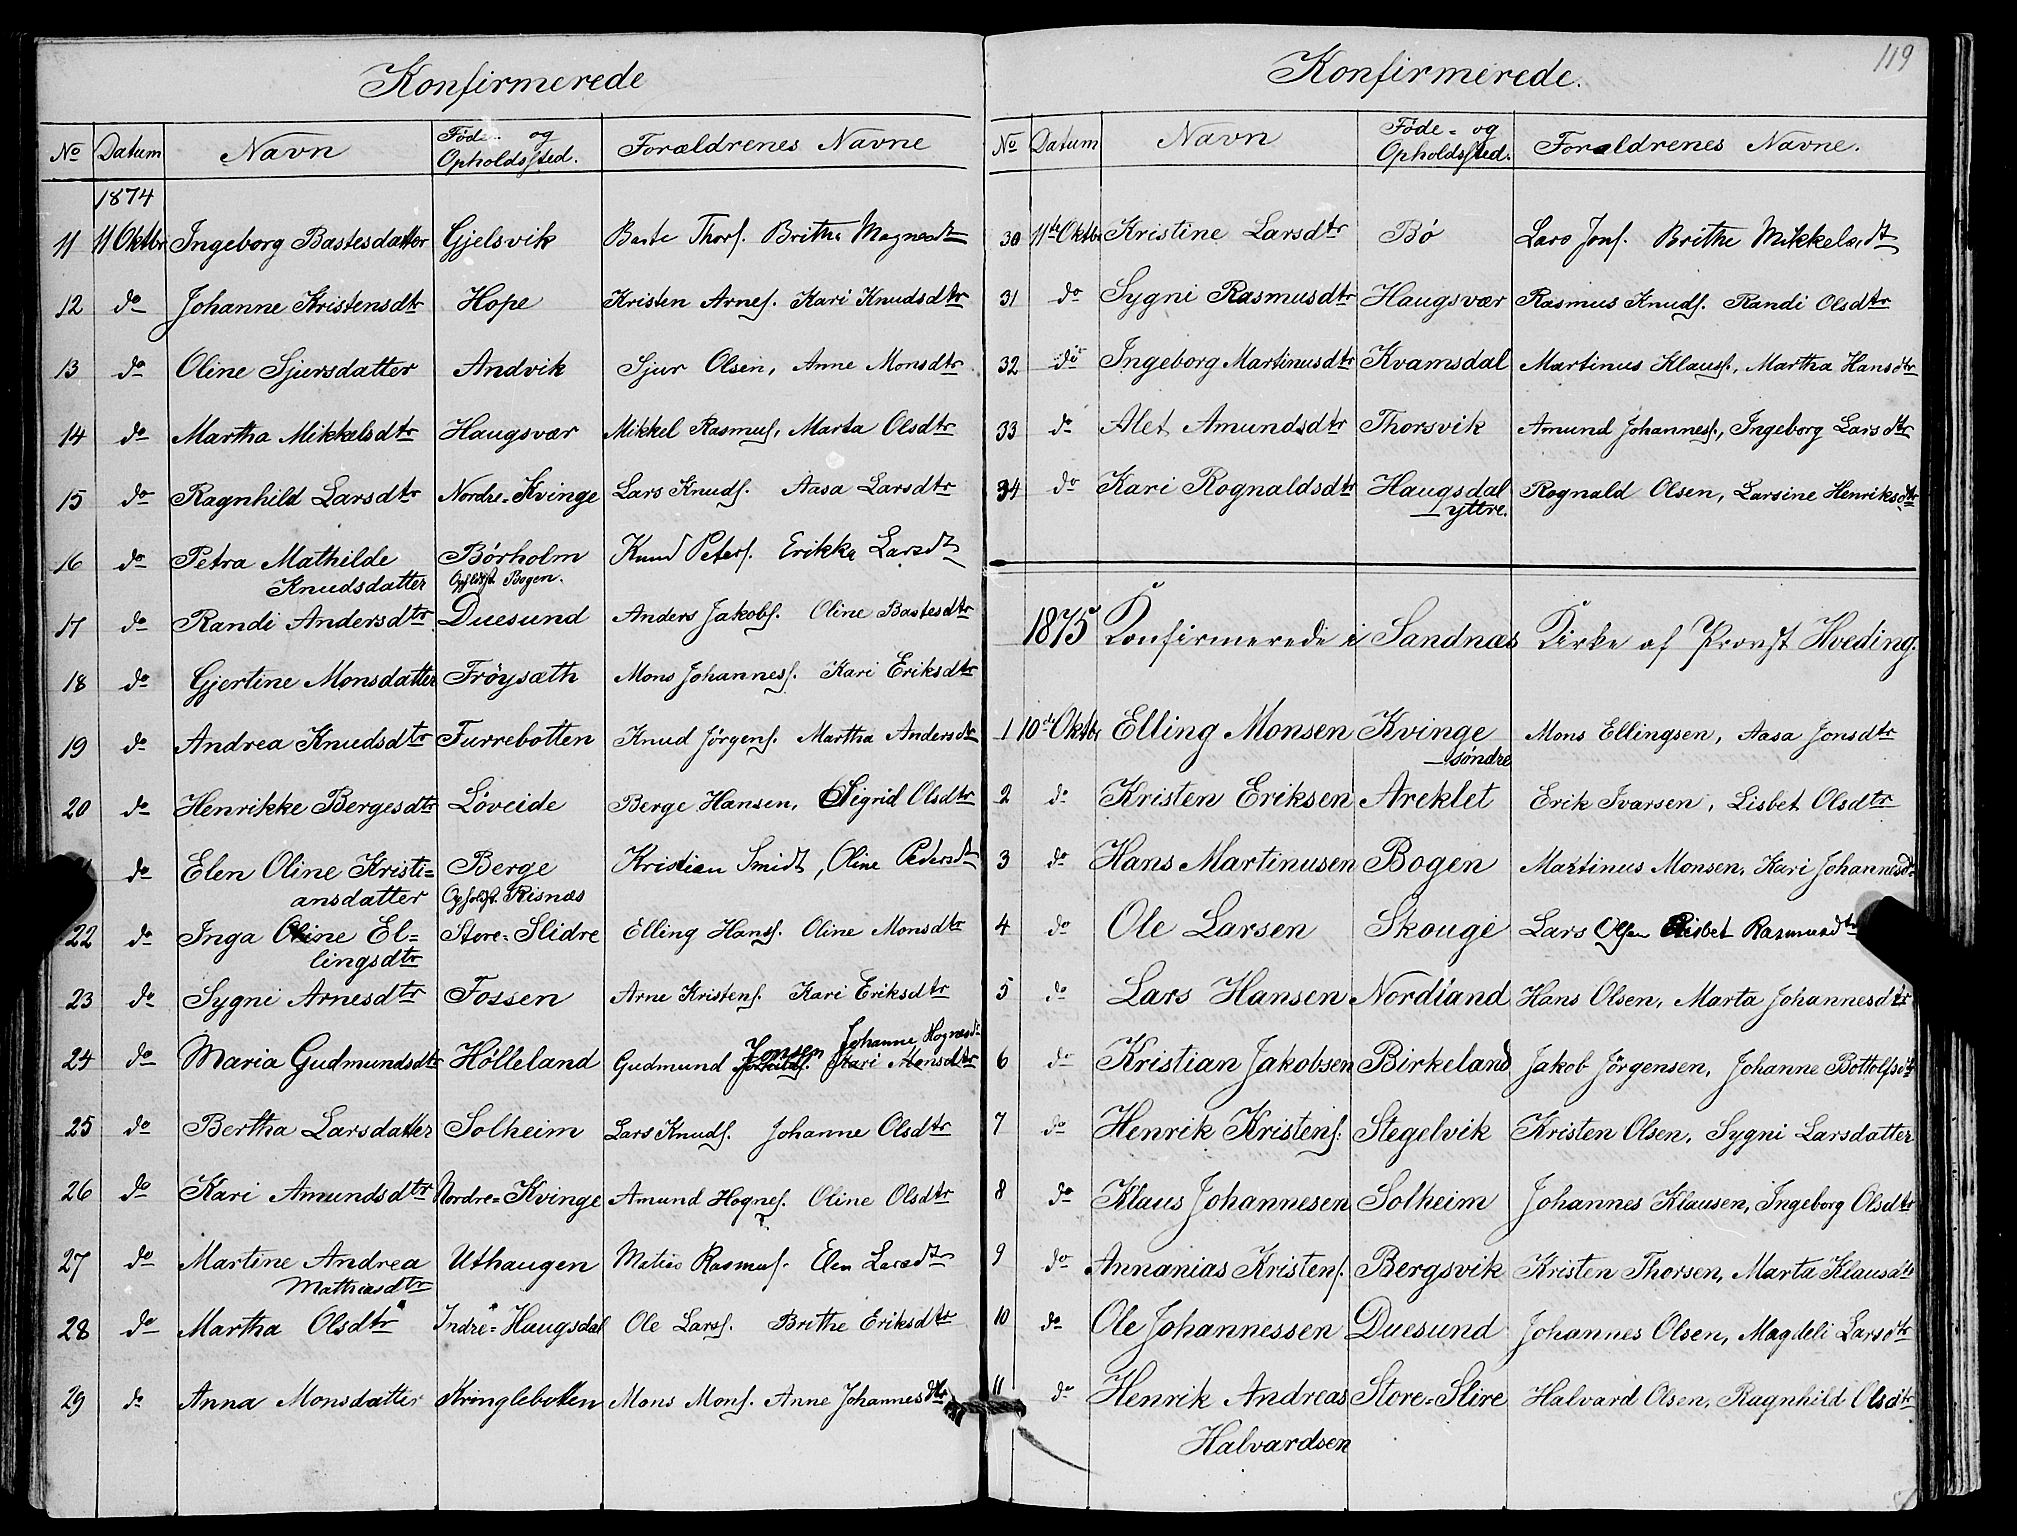 Konfirmerede
No Datum Navn Føde- og Opholdssted. Forældrenes Navne
1874
11 11 Oktbr Ingeborg Bastesdatter Gjelsvik Baste Thors. Brithe Magnesdt
12 do Johanne Kristensdtr Hope Kristen Arnes. Kari Knudsdtr
13 do Oline Sjursdatter Andvik Sjur Olsen, Anne Monsdtr
14 do Martha Mikkelsdtr Haugsvær Mikkel Rasmus. Marta Olsdtr
15 do Ragnhild Larsdtr Nordre-Kvinge Lars Knuds. Aasa Larsdtr
16 do Petra Mathilde Børholm Knud Peters. Erikke Larsdt
Knudsdatter Opholdst. Bogen.
17 do Randi Andersdtr Duesund Anders Jakobs. Oline Bastesdtr
18 do Gjertine Monsdatter Frøysæth Mons Johanness. Kari Eriksdtr
19 do Andrea Knudsdtr Furrebotten Knud Jørgens. Martha Andersdtr
20 do Henrikke Bergesdtr Løveide Berge Hansen, Sigrid Olsdtr
do Elen Oline Kristi= Berge Kristian Smidt, Oline Pedersdt
ansdatter Opholdst. Risnæs
22 do Inga Oline El= Store-Slidre Elling Hanss. Oline Monsdtr
lingsdtr
23 do Sygni Arnesdtr Fossen Arne Kristens. Kari Eriksdtr
Jonsen Johanne Hognesdr
24 do Maria Gudmundsdtr Hølleland Gudmund Kari Monsdtr
25 do Bertha Larsdatter Solheim Lars Knuds. Johanne Olsdtr
26 do Kari Amundsdtr Nordre-Kvinge Amund Hognes. Oline Olsdtr
27 do Martine Andrea Uthaugen Matias Rasmus. Elen Larsdtr
Mathiasdtr
28 do Martha Olsdtr Indre-Haugsdal Ole Larss. Brithe Eriksdtr
29 do Anna Monsdatter Kringlebotten Mons Mons. Anne Johannesdtr
119
Konfirmerede.
No Datum Navn Føde- og Opholdssted. Forældrenes Navne.
30 11te Oktbr Kristine Larsdtr Bø Lars Jons. Brithe Mikkelsdt
31 do Sygni Rasmusdtr Haugsvær Rasmus Knuds. Randi Olsdtr
32 do Ingeborg Martinusdtr Kvamsdal Martinus Klauss., Martha Hansdtr
33 do Alet Amundsdtr Thorsvik Amund Johanness., Ingeborg Larsdtr
34 do Kari Rognaldsdtr Haugsdal Rognald Olsen, Larsine Henriksdtr
yttre.
1875 Konfirmerede i Sandnæs Kirke af Provst Hveding.
1 10de Oktbr Elling Monsen Kvinge Mons Ellingsen, Aasa Jonsdtr
søndre
2 do Kristen Eriksen Areklet Erik Ivarsen, Lisbet Olsdtr
3 do Hans Martinusen Bogen Martinus Monsen, Kari Johannesdr
4 do Ole Larsen Skouge Lars Olsen Lisbet Rasmusdtr
5 do Lars Hansen Nordland Hans Olsen, Marta Johannesdtr
6 do Kristian Jakobsen Birkeland Jakob Jørgensen, Johanne Bottolfsdtr
7 do Henrik Kristens. Stegelvik Kristen Olsen, Sygni Larsdatter
8 do Klaus Johannesen Solheim Johannes Klausen, Ingeborg Olsdtr
9 do Annanias Kristens. Bergsvik Kristen Thorsen, Marta Klausdtr
10 do Ole Johannessen Duesund Johannes Olsen, Magdeli Larsdtr
11 do Henrik Andreas Store-Slire Halvard Olsen, Ragnhild Olsdtr
Halvardsen